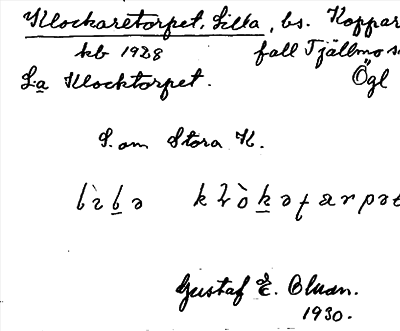 Klockaretorpet, Lilla, bs. Koppar
kb 1928 fall Tjällmo s
L:a Klocktorpet. Ögl
S. om Stora K.
Gustaf E. Olman.
1930.